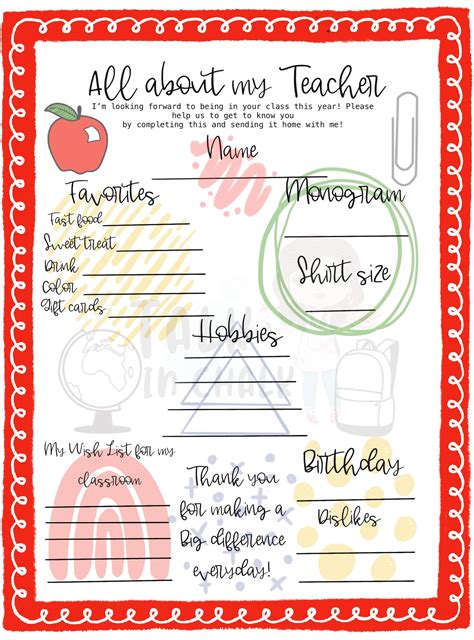 All about my Teacher
I'm looking forward to being in your class this year! Please
help us to get to know you
by completing this and sending it home with me!
Name
Favorites
Fast food
Sweet treat
Drink
Color
Gift cards
Monogram
Shirt size
Hobbies
IN CHALK
My Wish List for my
classroom
Thank you
for making a
Big difference
everyday!
Birthday
Dislikes